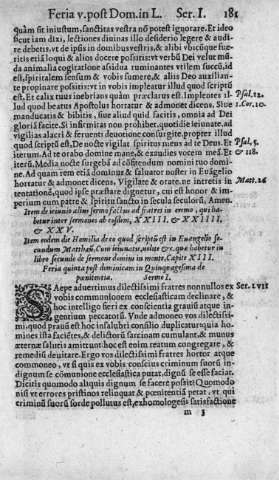 Feria v. post Dom. in L. Ser. I. 181
quàm sit iniustum, sanctitas vestra nõ potest ignorare. Et ideo
ficut iam dixi, lectiones diuinas illo desiderio legere & audi-
re debetis, vt de ipsis in domibus vestris, & alibi vbicũque fue-
ritis etiã loqui & alios docere possitis: et verbũ Dei velut mũ-
da animalia cogitatione assidua ruminantes vtilem succũ, id
est, spiritalem sensum & vobis sumere, & aliis Deo auxilian-
te propinare possitis: et in vobis impleatur illud quod scriptũ
est, Et calix tuus inebrians quàm præclarus est. Impleatur il-
lud quod beatus Apostolus hortatur & admonet dicens, Siue
manducatis & bibitis, siue aliud quid facitis, omnia ad Dei
gloriã facite. Si infirmitas non prohibet, quotidie ieiunate, ad
vigilias alacri & feruenti deuotione consurgite, propter illud
quod scriptũ est, De nocte vigilat spiritus meus ad te Deus. Et
iterum, Ad te orabo domine mane, & exaudies vocem meã. Et
iterũ, Media nocte surgebã ad cõfitendum nomini tuo domi-
ne. Ad quam rem etiã dominus & saluator noster in Euãgelio
hortatur & admonet dicens, Vigilate & orate, ne intretis in
tentationẽ, quod ipse præstare dignetur, cui est honor & im-
perium cum patre & Spiritu sancto in secula seculorũ. Amen.
Psal. 22.
1. Cor. 10.
Psal. 5.
& 118.
Matt. 26
Item de ieiunio alius sermo factus ad fratres in eremo, qui ha-
betur inter sermones ab eisdem, XXIII. & XXIIII,
& XXV.
Item eodem die Homilia de eo quod scriptũ est in Euangelio se-
cundum Matthæũ, Cum ieiunatis, nolite &c. quæ habetur in
libro secundo de sermone domini in monte. Capite XIII.
Feria quinta post dominicam in Quinquagesima de
pœnitentia. Sermo I.
SAepe aduertimus dilectissimi fratres nonnullos ex
vobis communionem ecclesiasticam declinare, &
hoc intelligo fieri ex conscientia grauũ atque in-
gentium peccatorũ. Vnde admoneo vos dilectissi-
mi: quod prauũ est hoc insalubri consilio duplicatur: quia ho-
mines ista faciẽtes, & delictorũ sarcinam cumulant, & munus
æternæ salutis amittunt: hoc est enim reatum congregare, &
remedii deuitare. Ergo vos dilectissimi fratres hortor atque
commoneo, vt si quis ex vobis conscius criminum suorũ in-
dignum se cõmunione ecclesiastica putat, dignũ se esse faciat.
Dicitis quomodo aliquis dignum se facere possit? Quomodo
nisi vt errores pristinos relinquat & pœnitentiã petat, vt qui
criminũ suorũ sorde pollutus est, exhomologesis satisfactione
Ser. I. VII
m 3